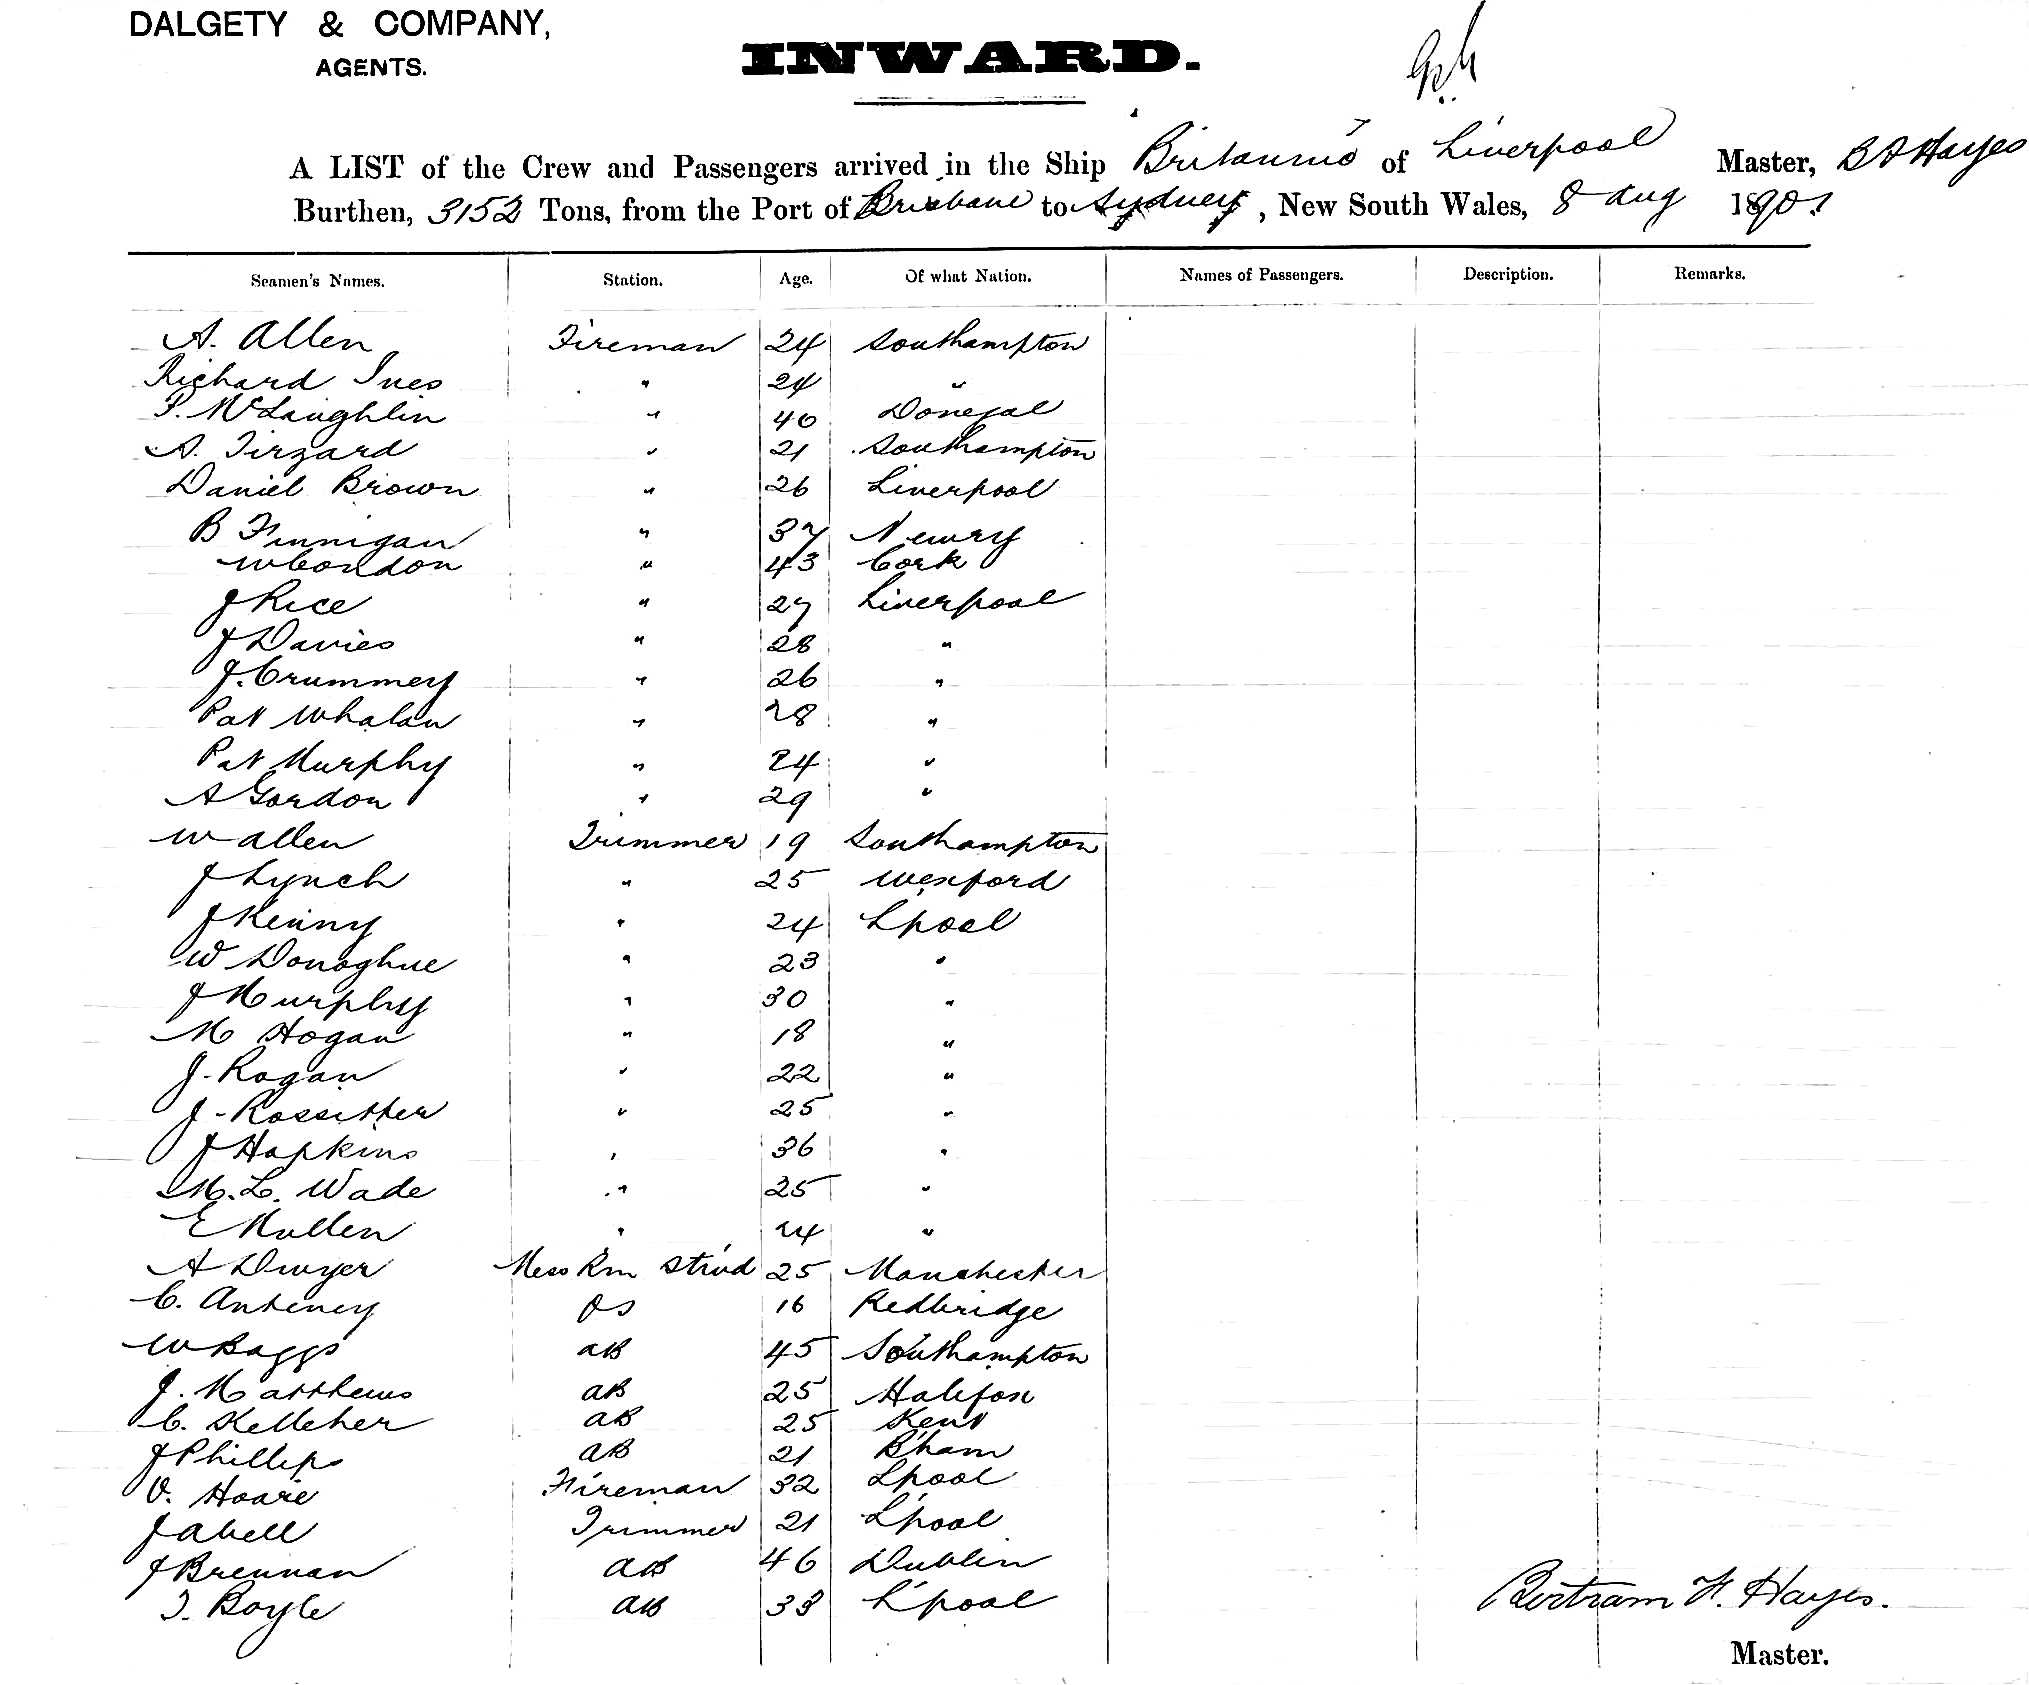 DALGETY & COMPANY,
AGENTS.
INWARD.
A LIST of the Crew and Passengers arrived in the Ship Britannic of Liverpool Master, B F Hayes
Burthen, 3152 Tons, from the Port of Brisbane to Sydney, New South Wales, 8 Aug 1901
Seamen's Names. Station. Age. Of what Nation. Names of Passengers. Description. Remarks.
A. Allen Fireman 24 Southampton
Richard Ives " 24 "
P. McLaughlin " 40 Donegal
A. Tirzard " 21 Southampton
Daniel Brown " 26 Liverpool
B Finnigan " 37 Newry
W Condon " 43 Cork
J Rice " 27 Liverpool
J Davies " 28 "
J. Crummey " 26 "
Pat Whalan " 28 "
Pat Murphy " 24 "
A Gordon " 29 "
W Allen Trimmer 19 Southampton
J Lynch " 25 Wexford
J Kenny " 24 Lpool
W Donoghue " 23 "
J Murphy " 30 "
M Hogan " 18 "
J. Rogan " 22 "
J. Rossitter " 25 "
J Hopkins " 36 "
M. L. Wade " 25 "
E Mullen " 24 "
A Dwyer Mess Rm Strd 25 Manchester
C. Anteney OS 16 Redbridge
W Baggs AB 45 Southampton
J. Matthews AB 25 Halifax
C. Kelleher AB 25 Kent
J Phillips AB 21 B'ham
V. Hoare Fireman 32 L'pool
J Abell Trimmer 21 L'pool
J Brennan AB 46 Dublin
T. Boyle AB 33 L'pool
Bertram F. Hayes.
Master.